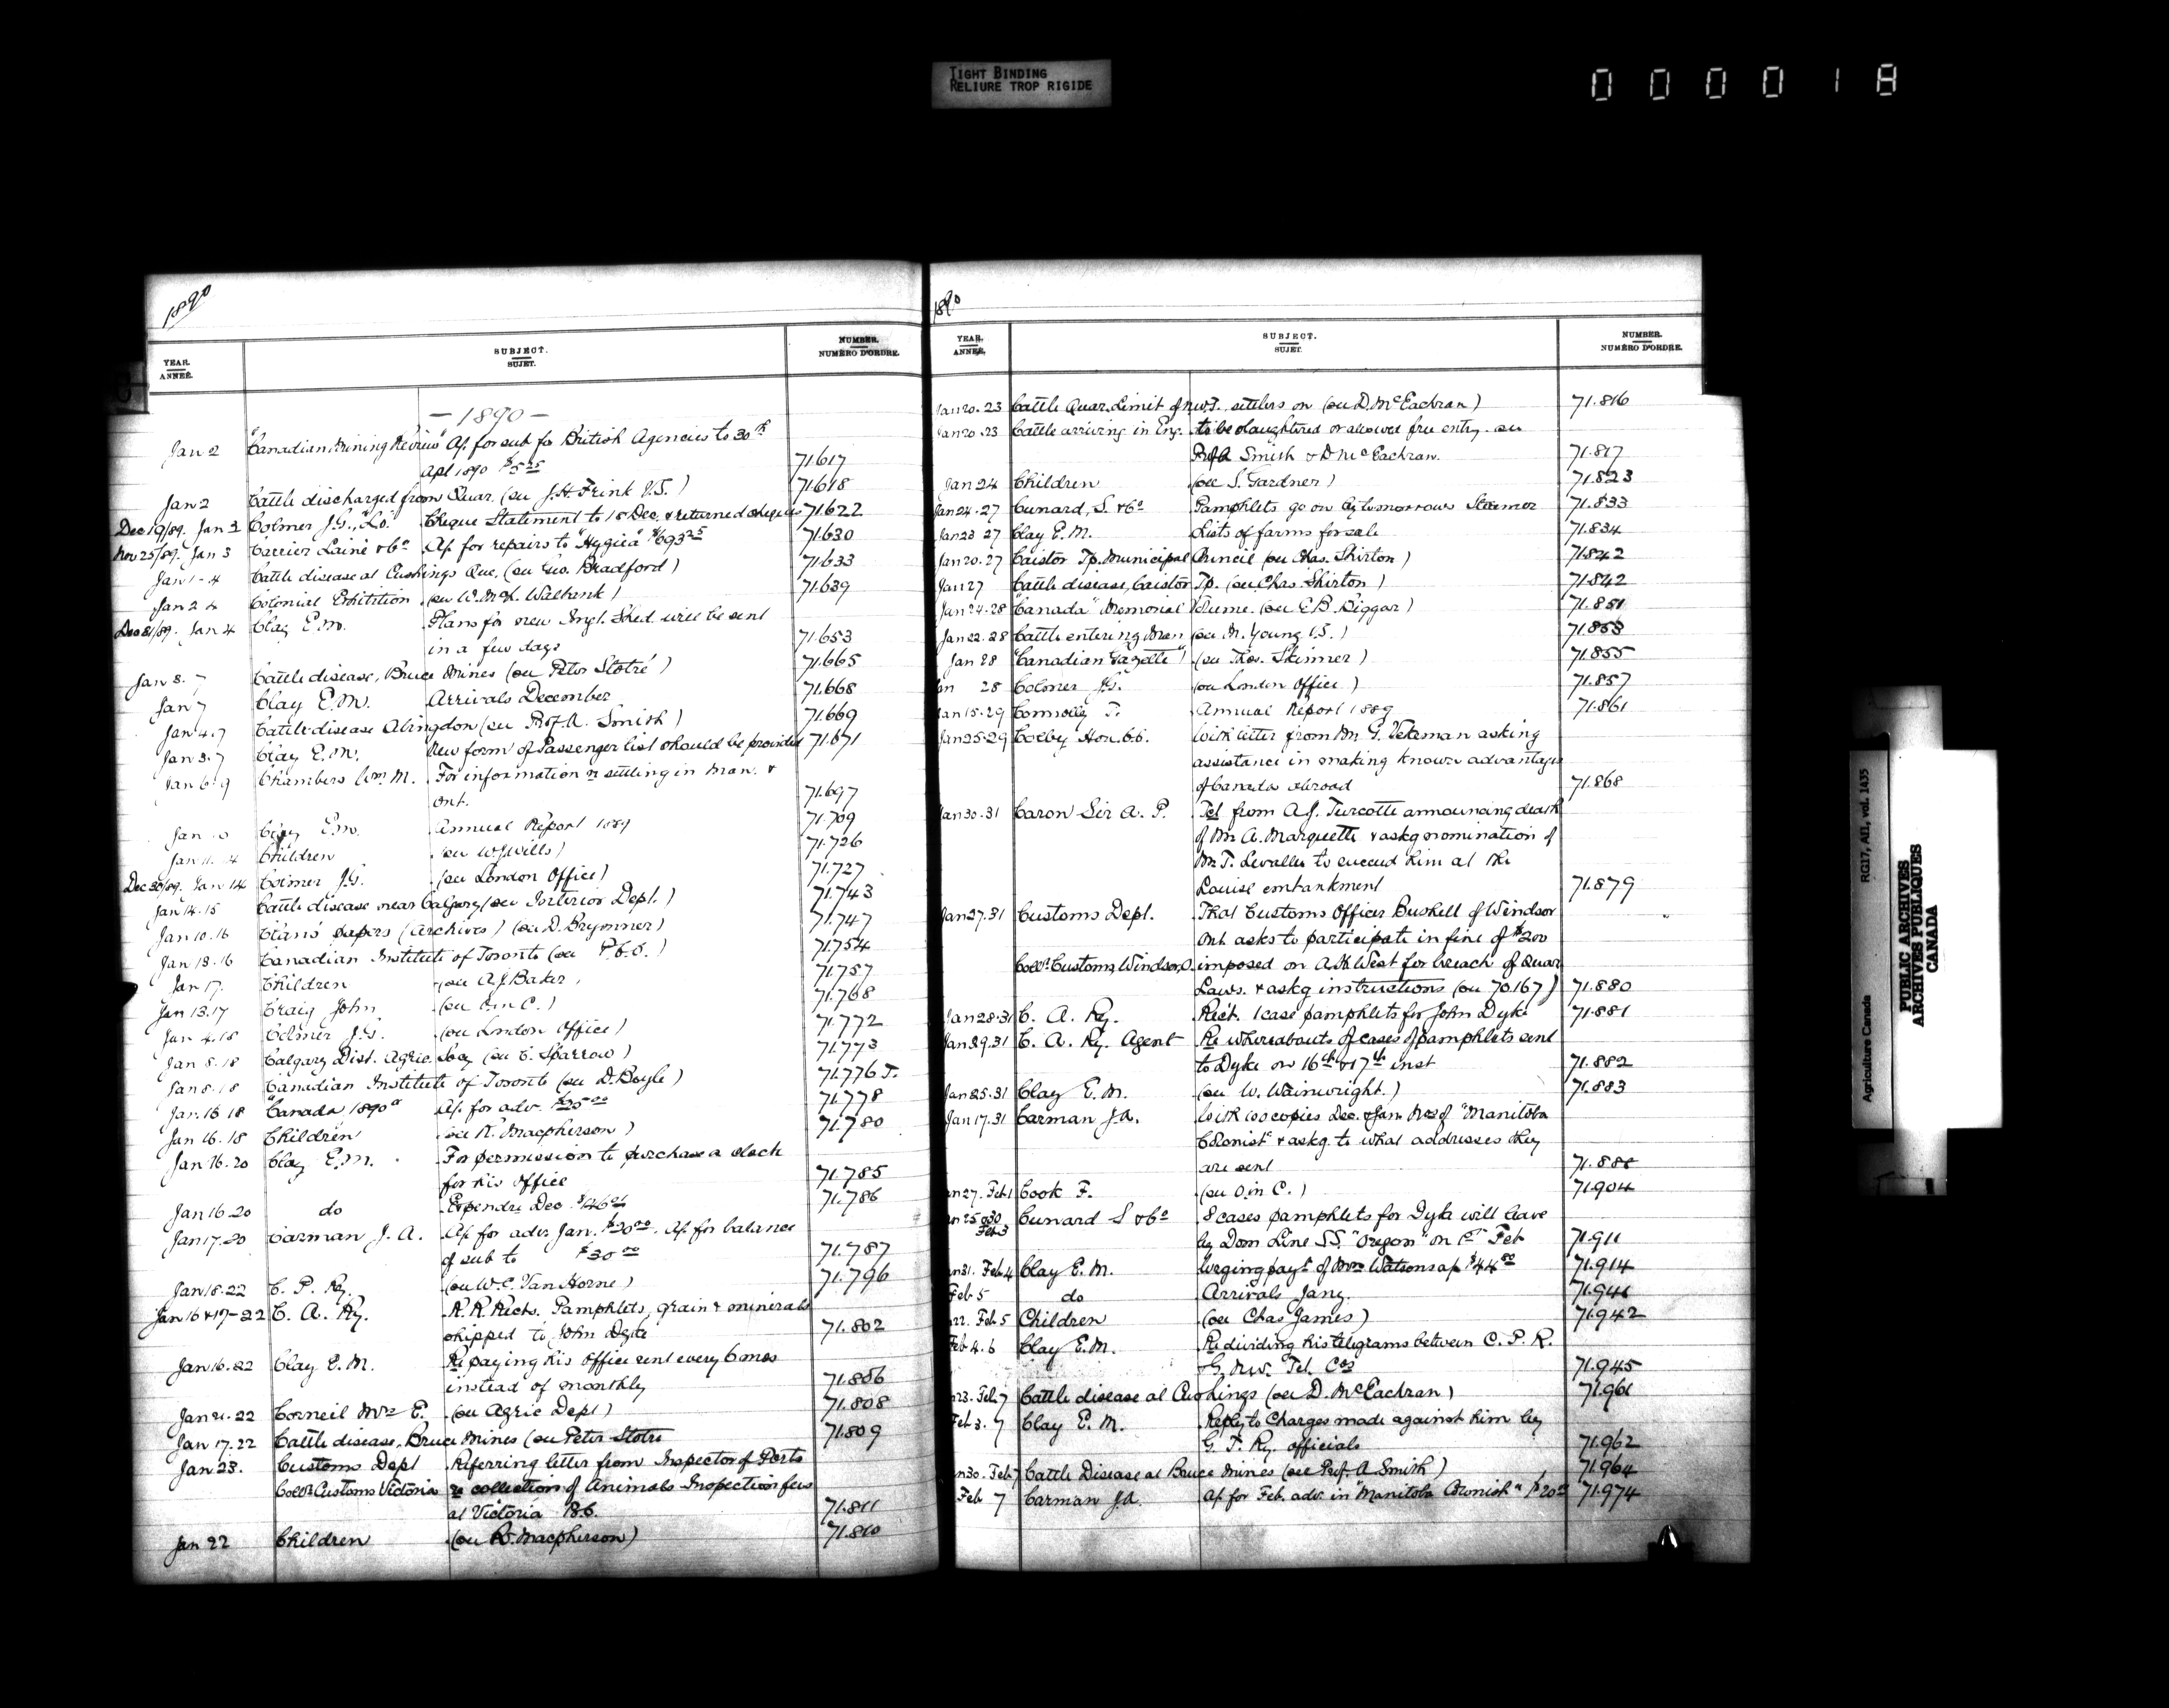 TIGHT BINDING
RELIURE TROP RIGIDE
000018
1890
YEAR.
ANNÉE.
SUBJECT.
SUJET.
NUMBER.
NUMÉRO D'ORDRE.
— 1890 —
Jan 2 "Canadian Mining Review" Ap. for sub for British Agencies to 30th
Apl 1890 71.617
Jan 2 Cattle discharged from Quar. (see J.H. Frink V.S.) 71.618
Dec 19/89. Jan 2 Colmer J.G., Cheque Statement to 15 Dec. & returned cheques 71.622
Nov 25/89. Jan 3 Carrier Lainé & Co Ap. for repairs to "Hygiea" $693 25 71.630
Jan 1-4 Cattle disease at Cushings Que. (see Geo. Bradford) 71.633
Jan 2 4 Colonial Exhibition (see W. McK. Walbank) 71.639
Dec 31/89. Jan 4 Clay E.M. Plans for new Imgt. Shed will be sent
in a few days 71.653
Jan 3. 7 Cattle disease, Bruce Mines (see Peter Stotre) 71.665
Jan 7 Clay E.M. Arrivals December 71.668
Jan 4.7 Cattle disease Abingdon (see Prof. A. Smith) 71.669
Jan 3.7 Clay E.M. New form of Passenger list should be provided 71.671
Jan 6.9 Chambers Wm. M. For information re settling in Man. &
Ont. 71.697
Jan Clay E.M. Annual Report 1889 71.709
Jan 11. 14 Children (see W.J. Wills) 71.726
Dec 30/89. Jan 14 Colmer J.G. (see London Office) 71.727
Jan 14.15 Cattle disease near Calgary (see Interior Dept.) 71.743
Jan 10.16 papers (Archives) (see D. Brymner) 71.747
Jan 13.16 Canadian Institute of Toronto (see P.C.O.) 71.754
Jan 17. Children (see A.J. Baker) 71.757
Jan 13.17 Craig John (see O. in C.) 71.768
Jan 4.18 Colmer J.G. (see London Office) 71.772
Jan 8.18 Calgary Dist. Agric. Socy (see C. Sparrow) 71.773
Jan 8.18 Canadian Institute of Toronto (see D. Boyle) 71.776 J.
Jan. 16 18 "Canada 1890" Ap. for adv. $25 00 71.778
Jan 16.18 Children (see R. Macpherson) 71.780
Jan 16.20 Clay E.M. For permission to purchase a clock
for his office 71.785
Jan 16.20 do Expendre Dec. 71.786
Jan 17.20 Carman J.A. Ap. for adv. Jan. $20 00. Ap. for balance
of sub to $30 00 71.787
Jan 18.22 C. P. Ry. (see W.C. Van Horne) 71.796
Jan 16 & 17-22 C. A. Ry. R.R. Rects. Pamphlets, grain & minerals
shipped to John Dyke 71.802
Jan 16.22 Clay E.M. Re paying his office rent every 6 mos
instead of monthly 71.806
Jan 21.22 Corneil Mrs E. (see Agric Dept) 71.808
Jan 17.22 Cattle disease, Bruce Mines (see Peter Stotre 71.809
Jan 23. Customs Dept Referring letter from Inspector of Ports
Collr Customs Victoria re collection of Animals Inspection fees
at Victoria B.C. 71.811
Jan 22 Children (see R. Macpherson) 71.810
1890
YEAR.
ANNÉE.
SUBJECT.
SUJET.
NUMBER.
NUMÉRO D'ORDRE.
Jan 20.23 Cattle Quar. Limit of N.W.T., settlers on (see D. McEachran) 71.816
Jan 20.23 Cattle arriving in Eng. to be slaughtered or allowed free entry. see
Prof A Smith & D McEachran. 71.817
Jan 24 Children (see S. Gardner) 71.823
Jan 24.27 Cunard, S. & Co Pamphlets go on by tomorrows Steamer 71.833
Jan 23 27 Clay E.M. Lists of farms for sale 71.834
Jan 20.27 Caistor Tp. Municipal Council (see Chas. Shirton) 71.842
Jan 27 Cattle disease, Caistor Tp. (see Chas. Shirton) 71.842
Jan 24.28 "Canada" Memorial Volume. (see E.B. Biggar) 71.851
Jan 22.28 Cattle entering Man (see M. Young V.S.) 71.853
Jan 28 "Canadian Gazette" (see Thos. Skinner) 71.855
Jan 28 Colmer J.G. (see London Office) 71.857
Jan 15.29 Connolly T. Annual Report 1889 71.861
Jan 25.29 Colby Hon. C.C. With letter from Mr. G. asking
assistance in making known advantages
of Canada abroad 71.868
Jan 30.31 Caron Sir A. P. Tel from A.J. Turcotte announcing death
of Mr A. Marquette & askg nomination of
Mr. T. Levallee to succeed him at the
Louise embankment 71.879
Jan 27.31 Customs Dept. That Customs Officer Bushell of Windsor
Ont. asks to participate in fine of $200
Collr. Customs, Windsor, O. imposed on A.H. West for breach of Quar
Laws. & askg instructions (see 70.167) 71.880
Jan 28.31 C. A. Ry. Rect. 1 case pamphlets for John Dyke 71.881
Jan 29.31 C. A. Ry. Agent Re whereabouts of cases of pamphlets sent
to Dyke on 16th & 17th inst 71.882
Jan 25.31 Clay E.M. (see W. Wainwright.) 71.883
Jan 17.31 Carman J.A. With 100 copies Dec. & Jan. Nos of "Manitoba
Colonist" & askg. to what addresses they
are sent 71.888
Jan 27. Feb 1 Cook F. (see O. in C.) 71.904
Jan 25 & 30 Feb 3 Cunard S & Co 8 cases pamphlets for Dyke will leave
by Dom Line SS. "Oregon" on 1st Feb 71.911
Jan 31. Feb 4 Clay E.M. Urging payt. of Mrs Watsons ap $44 80 71.914
Feb 5 do Arrivals Jany. 71.941
22. Feb 5 Children (see Chas James) 71.942
Feb 4.6 Clay E.M. Re dividing his telegrams between C.P.R.
& G.N.W. Tel. Cos 71.945
23. Feb 7 Cattle disease at Cushings (see D. McEachran) 71.961
Feb 3. 7 Clay E.M. Reply to Charges made against him by
G. T. Ry. officials 71.962
Jan 30. Feb 7 Cattle Disease at Bruce Mines (see Prof. A Smith) 71.964
Feb 7 Carman J.A. Ap. for Feb. adv. in "Manitoba Colonist" $20 00 71.974
Agriculture Canada RG17, AI1, vol. 1435
PUBLIC ARCHIVES
ARCHIVES PUBLIQUES
CANADA